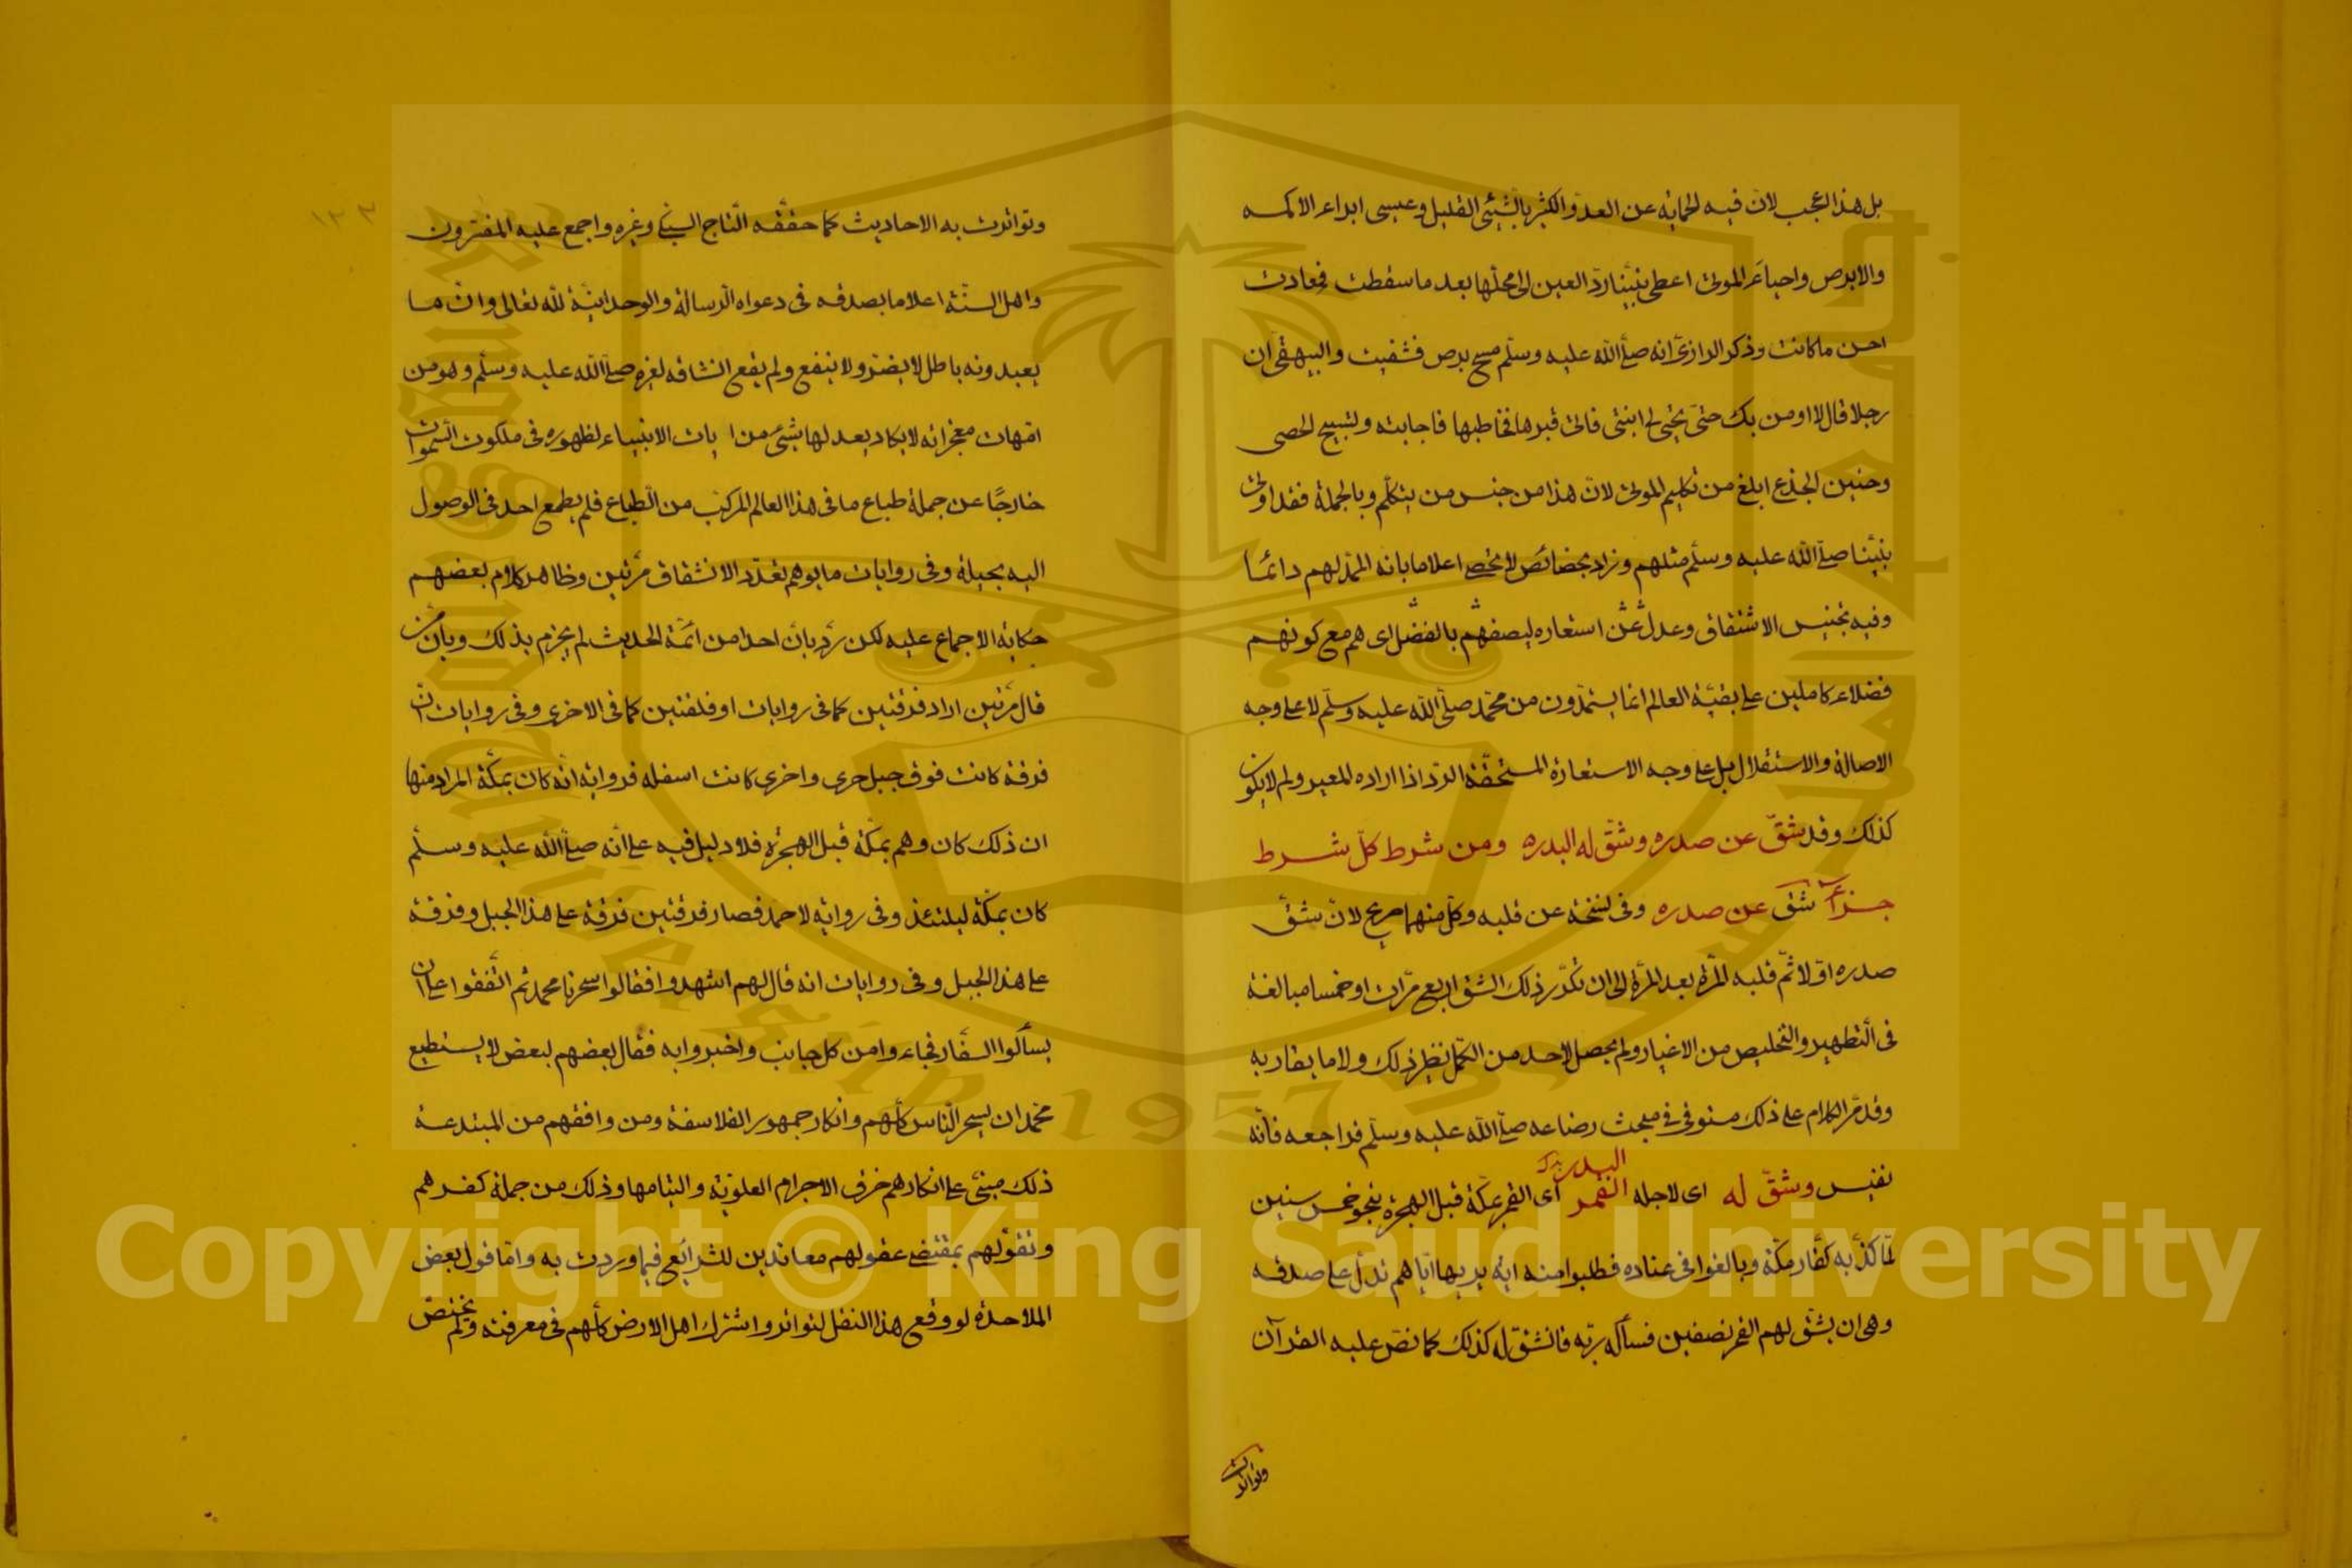 بل هذا اعجب لان فيه لحمايه عن العدو الكثير بالشيئ القليل وعيسى ابراء الاكمه
والابرص واحياء الموتى اعطى نبينا رد العين الى محلها بعد ما سقطت فعادت
احسن ما كانت وذكر الرازى انه صلى الله عليه وسلم مسح برص فشفيت والبيهقى ان
رجلا قال لا اومن بك حتى يحيى لى ابنتى فاتى قبرها فخاطبها فاجابته ولتسبيح الحصى
وحنين الجذع ابلغ من تكليم الموتى لان هذا من جنس من يتكلم وبالجملة فقد اوتى
نبينا صلى الله عليه وسلم مثلهم وزاد بخصائص لا تحصى اعلاما بانه الممد لهم دائما
وفيه تجنيس الاشتقاق وعدل عن استعاره ليصفهم بالفضل اى هم مع كونهم
فضلاء كاملين على بقية العالم انما يستمدون من محمد صلى الله عليه وسلم لا على وجه
الاصالة والاستقلال بل على وجه الاستعارة المستحقة الرد اذا اراده المعير ولم لا يكون
كذلك وقد شق عن صدره وشق له البدره ومن شرط كل شرط
جزآ شق عن صدره وفى نسخة عن قلبه وكل منهما صحيح لان شق
صدره اولا ثم قلبه المرة بعد المرة الى ان تكرر ذلك الشق اربع مرات او خمسا مبالغة
فى التطهير والتخليص من الاغيار ولم يحصل لاحد من الكمل نظير ذلك ولا ما يقاربه
وقد مر الكلام على ذلك مستوفى فى مبحث رضاعه صلى الله عليه وسلم فراجعه فانه
نفيس وشق له اى لاجله القمر البدر اى القمر بمكة قبل الهجرة بنحو خمس سنين
لما كذبه كفار مكة وبالغوا فى عناده فطلبوا منه اية يريها اياهم تدل على صدقه
وهى ان يشق لهم القمر نصفين فسأل ربه فانشق له كذلك كما نص عليه القرآن
وتواترت
١٢٣
وتواترت به الاحاديث كما حققه التاج السبكى وغيره واجمع عليه المفسرون
واهل السنة اعلاما بصدقه فى دعواه الرسالة والوحدانية لله تعالى وان ما
يعبدونه باطل لا يضر ولا ينفع ولم يقع انشاقه لغيره صلى الله عليه وسلم وهو من
امهات معجزاته لا يكاد يعد لها بشئ من ايات الانبياء لظهوره فى ملكوت السموات
خارجا عن جملة طباع ما فى هذا العالم المركب من الطباع فلم يطمع احد فى الوصول
اليه بحيلة وفى روايات ما يوهم تعدد الانشقاق مرتين وظاهر كلام بعضهم
حكاية الاجماع عليه لكن رد بان احدا من ائمة الحديث لم يجزم بذلك وبان من
قال مرتين اراد فرقتين كما فى روايات او فلقتين كما فى الاخرى وفى روايات ان
فرقة كانت فوق جبل حرى واخرى كانت اسفله فروايه انه كان بمكة المراد منها
ان ذلك كان وهم بمكة قبل الهجرة فلا دليل فيه على انه صلى الله عليه وسلم
كان بمكة ليلتئذ وفى رواية لاحمد فصار فرقتين فرقة على هذا الجبل وفرقة
على هذا الجبل وفى روايات انه قال لهم اشهدوا فقالوا سحرنا محمد ثم اتفقوا على ان
يسألوا السفار فجاءوا من كل جانب واخبروا به فقال بعضهم لبعض لا يستطيع
محمد ان يسحر الناس كلهم وانكار جمهور الفلاسفة ومن وافقهم من المبتدعة
ذلك مبنى على انكارهم خرق الاجرام العلوية والتيامها وذلك من جملة كفرهم
وتقولهم بمقتضى عقولهم معاندين للشرائع فيما وردت به واما قول بعض
الملاحدة لو وقع هذا النقل لتواتر واشترك اهل الارض كلهم فى معرفته ولم يختص
Copyright © King Saud University
King Saud University
1957